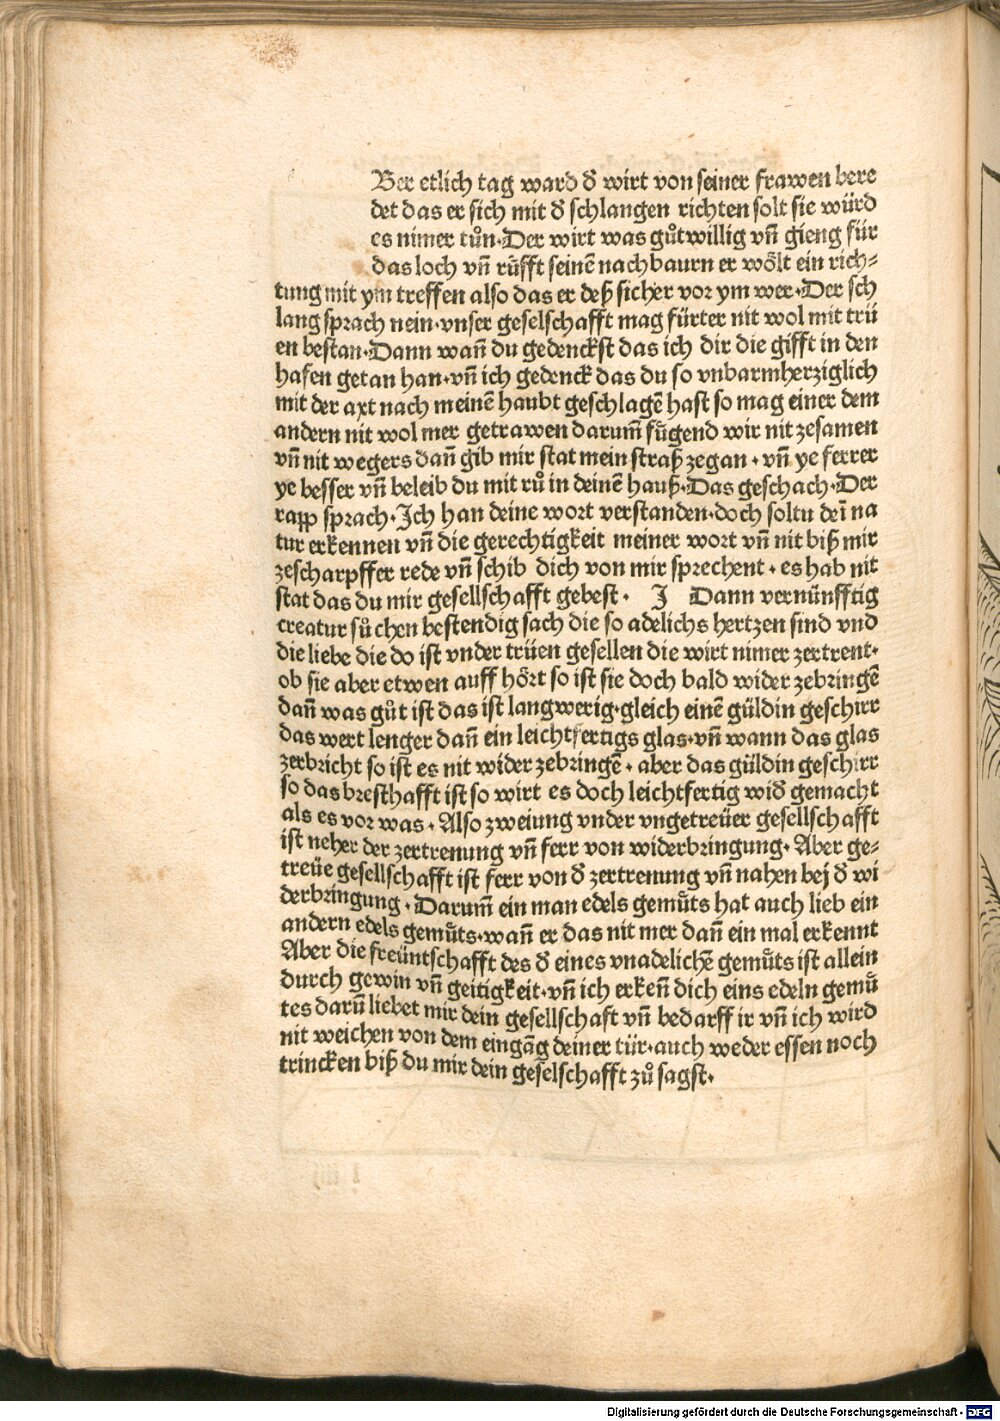 Ber etlich tag ward đ wirt von seiner frawen bere
det das er sich mit đ schlangen richten solt sie würd
es nimer tůn·Der wirt was gůtwillig vñ gieng für
das loch vñ růfft seinē nachbaurn er wölt ein rich⸗
tung mit ym treffen also das er deß sicher vor ym wer·Der sch
lang sprach nein·vnser geselschafft mag fürter nit wol mit trü
en bestan·Dann wañ du gedenckst das ich dir die gifft in den
hafen getan han·vñ ich gedenck das du so vnbarmherziglich
mit der axt nach meinē haubt geschlagē hast so mag einer dem
andern nit wol mer getrawen darum̄ fůgend wir nit zesamen
vñ nit wegers dañ gib mir stat mein straß zegan·vñ ye ferrer
ye besser vñ beleib du mit rů in deinē hauß·Das geschach·Der
rapp sprach·Ich han deine wort verstanden·doch soltu deī na
tur erkennen vñ die gerechtigkeit meiner wort vñ nit biß mir
zescharpffer rede vñ schib dich von mir sprechent·es hab nit
stat das du mir gesellschafft gebest· J Dann vernünfftig
creatur sůchen bestendig sach die so adelichs hertzen sind vnd
die liebe die do ist vnder trüen gesellen die wirt nimer zertrent·
ob sie aber etwen auff hört so ist sie doch bald wider zebringē
dañ was gůt ist das ist langwerig·gleich einē güldin geschirr
das wert lenger dañ ein leichtfertigs glas·vñ wann das glas
zerbricht so ist es nit wider zebringē·aber das güldin geschirr
so das bresthafft ist so wirt es doch leichtfertig wiđ gemacht
als es vor was·Also zweiung vnder vngetreüer gesellschafft
ist neher der zertrenung vñ ferr von widerbringung·Aber ge⸗
treüe gesellschafft ist ferr von đ zertrenung vñ nahen bej đ wi
derbringung·Darum̄ ein man edels gemůts hat auch lieb ein
andern edels gemůts·wañ er das nit mer dañ ein mal erkennt
Aber die freüntschafft des đ eines vnadelichē gemůts ist allein
durch gewin vñ geitigkeit·vñ ich erkeñ dich eins edeln gemů
tes darū liebet mir dein gesellschaft vñ bedarff ir vñ ich wird
nit weichen von dem eingāg deiner tür·auch weder essen noch
trincken biß du mir dein geselschafft zů sagst·
Digitalisierung gefördert durch die Deutsche Forschungsgemeinschaft - DFG